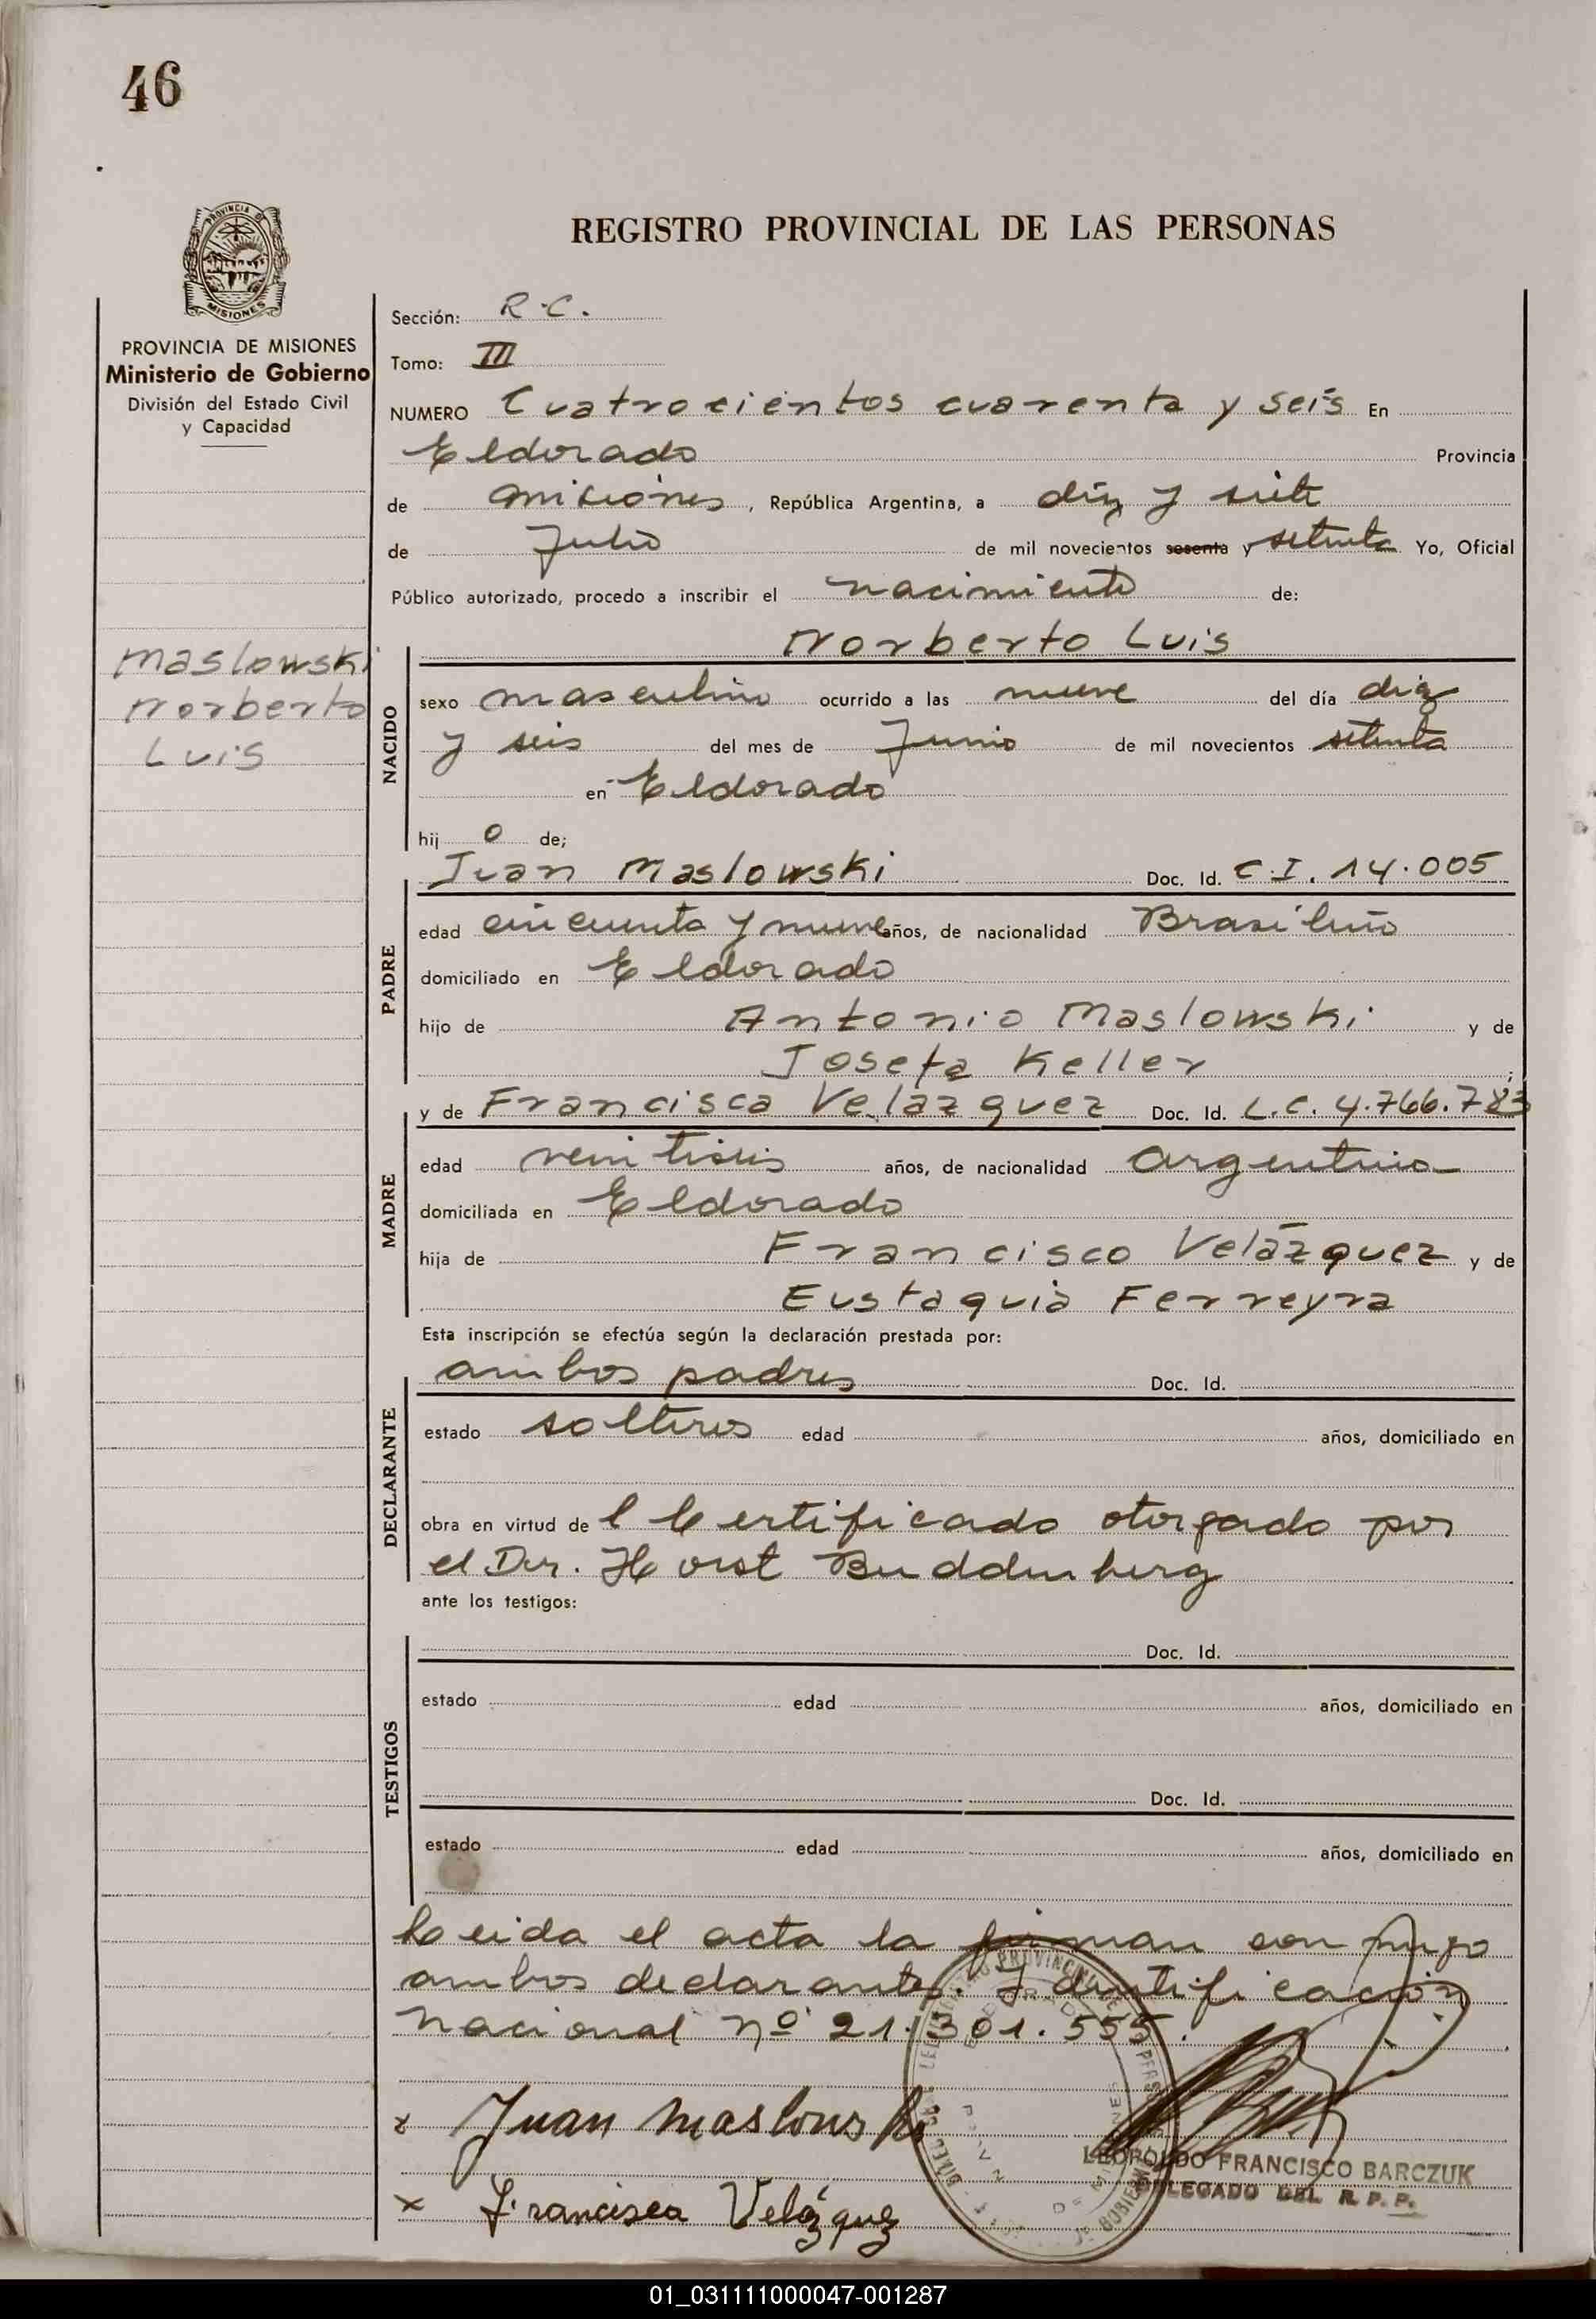 46
PROVINCIA DE
MISIONES
REGISTRO PROVINCIAL DE LAS PERSONAS
PROVINCIA DE MISIONES
Ministerio de Gobierno
División del Estado Civil
y Capacidad
Sección: R.C.
Tomo: III
NUMERO Cuatrocientos cuarenta y seis En
Eldorado Provincia
de Misiones, República Argentina, a diez y siete
de Julio de mil novecientos sesenta y setenta Yo, Oficial
Público autorizado, procedo a inscribir el nacimiento de:
Norberto Luis
Maslowski
Norberto
Luis
NACIDO
sexo masculino ocurrido a las nueve del día diez
y seis del mes de Junio de mil novecientos setenta
en Eldorado
hij o de;
Juan Maslowski Doc. Id. C.I. 14.005
PADRE
edad cincuenta y nueve años, de nacionalidad Brasileño
domiciliado en Eldorado
hijo de Antonio Maslowski y de
Josefa Keller ;
y de Francisca Velázquez Doc. Id. L.C. 4.766.783
MADRE
edad veintiseis años, de nacionalidad Argentina
domiciliada en Eldorado
hija de Francisco Velázquez y de
Eustaquia Ferreyra
Esta inscripción se efectúa según la declaración prestada por:
ambos padres Doc. Id.
DECLARANTE
estado solteros edad años, domiciliado en
obra en virtud de l Certificado otorgado por
el Dr. Horst Buddenberg
ante los testigos:
Doc. Id.
TESTIGOS
estado edad años, domiciliado en
Doc. Id.
estado edad años, domiciliado en
Leida el acta la firman con migo
ambos declarantes. Identificación
Nacional nº 21.301.555.
x Juan Maslowski
LEOPOLDO FRANCISCO BARCZUK
DELEGADO DEL R. P. P.
x Francisca Velázquez
01_031111000047-001287